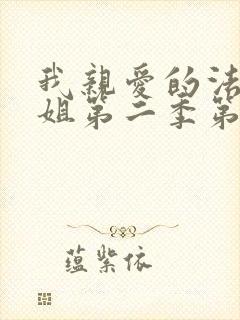 我親愛的法
姐第二季第
蕴紫依